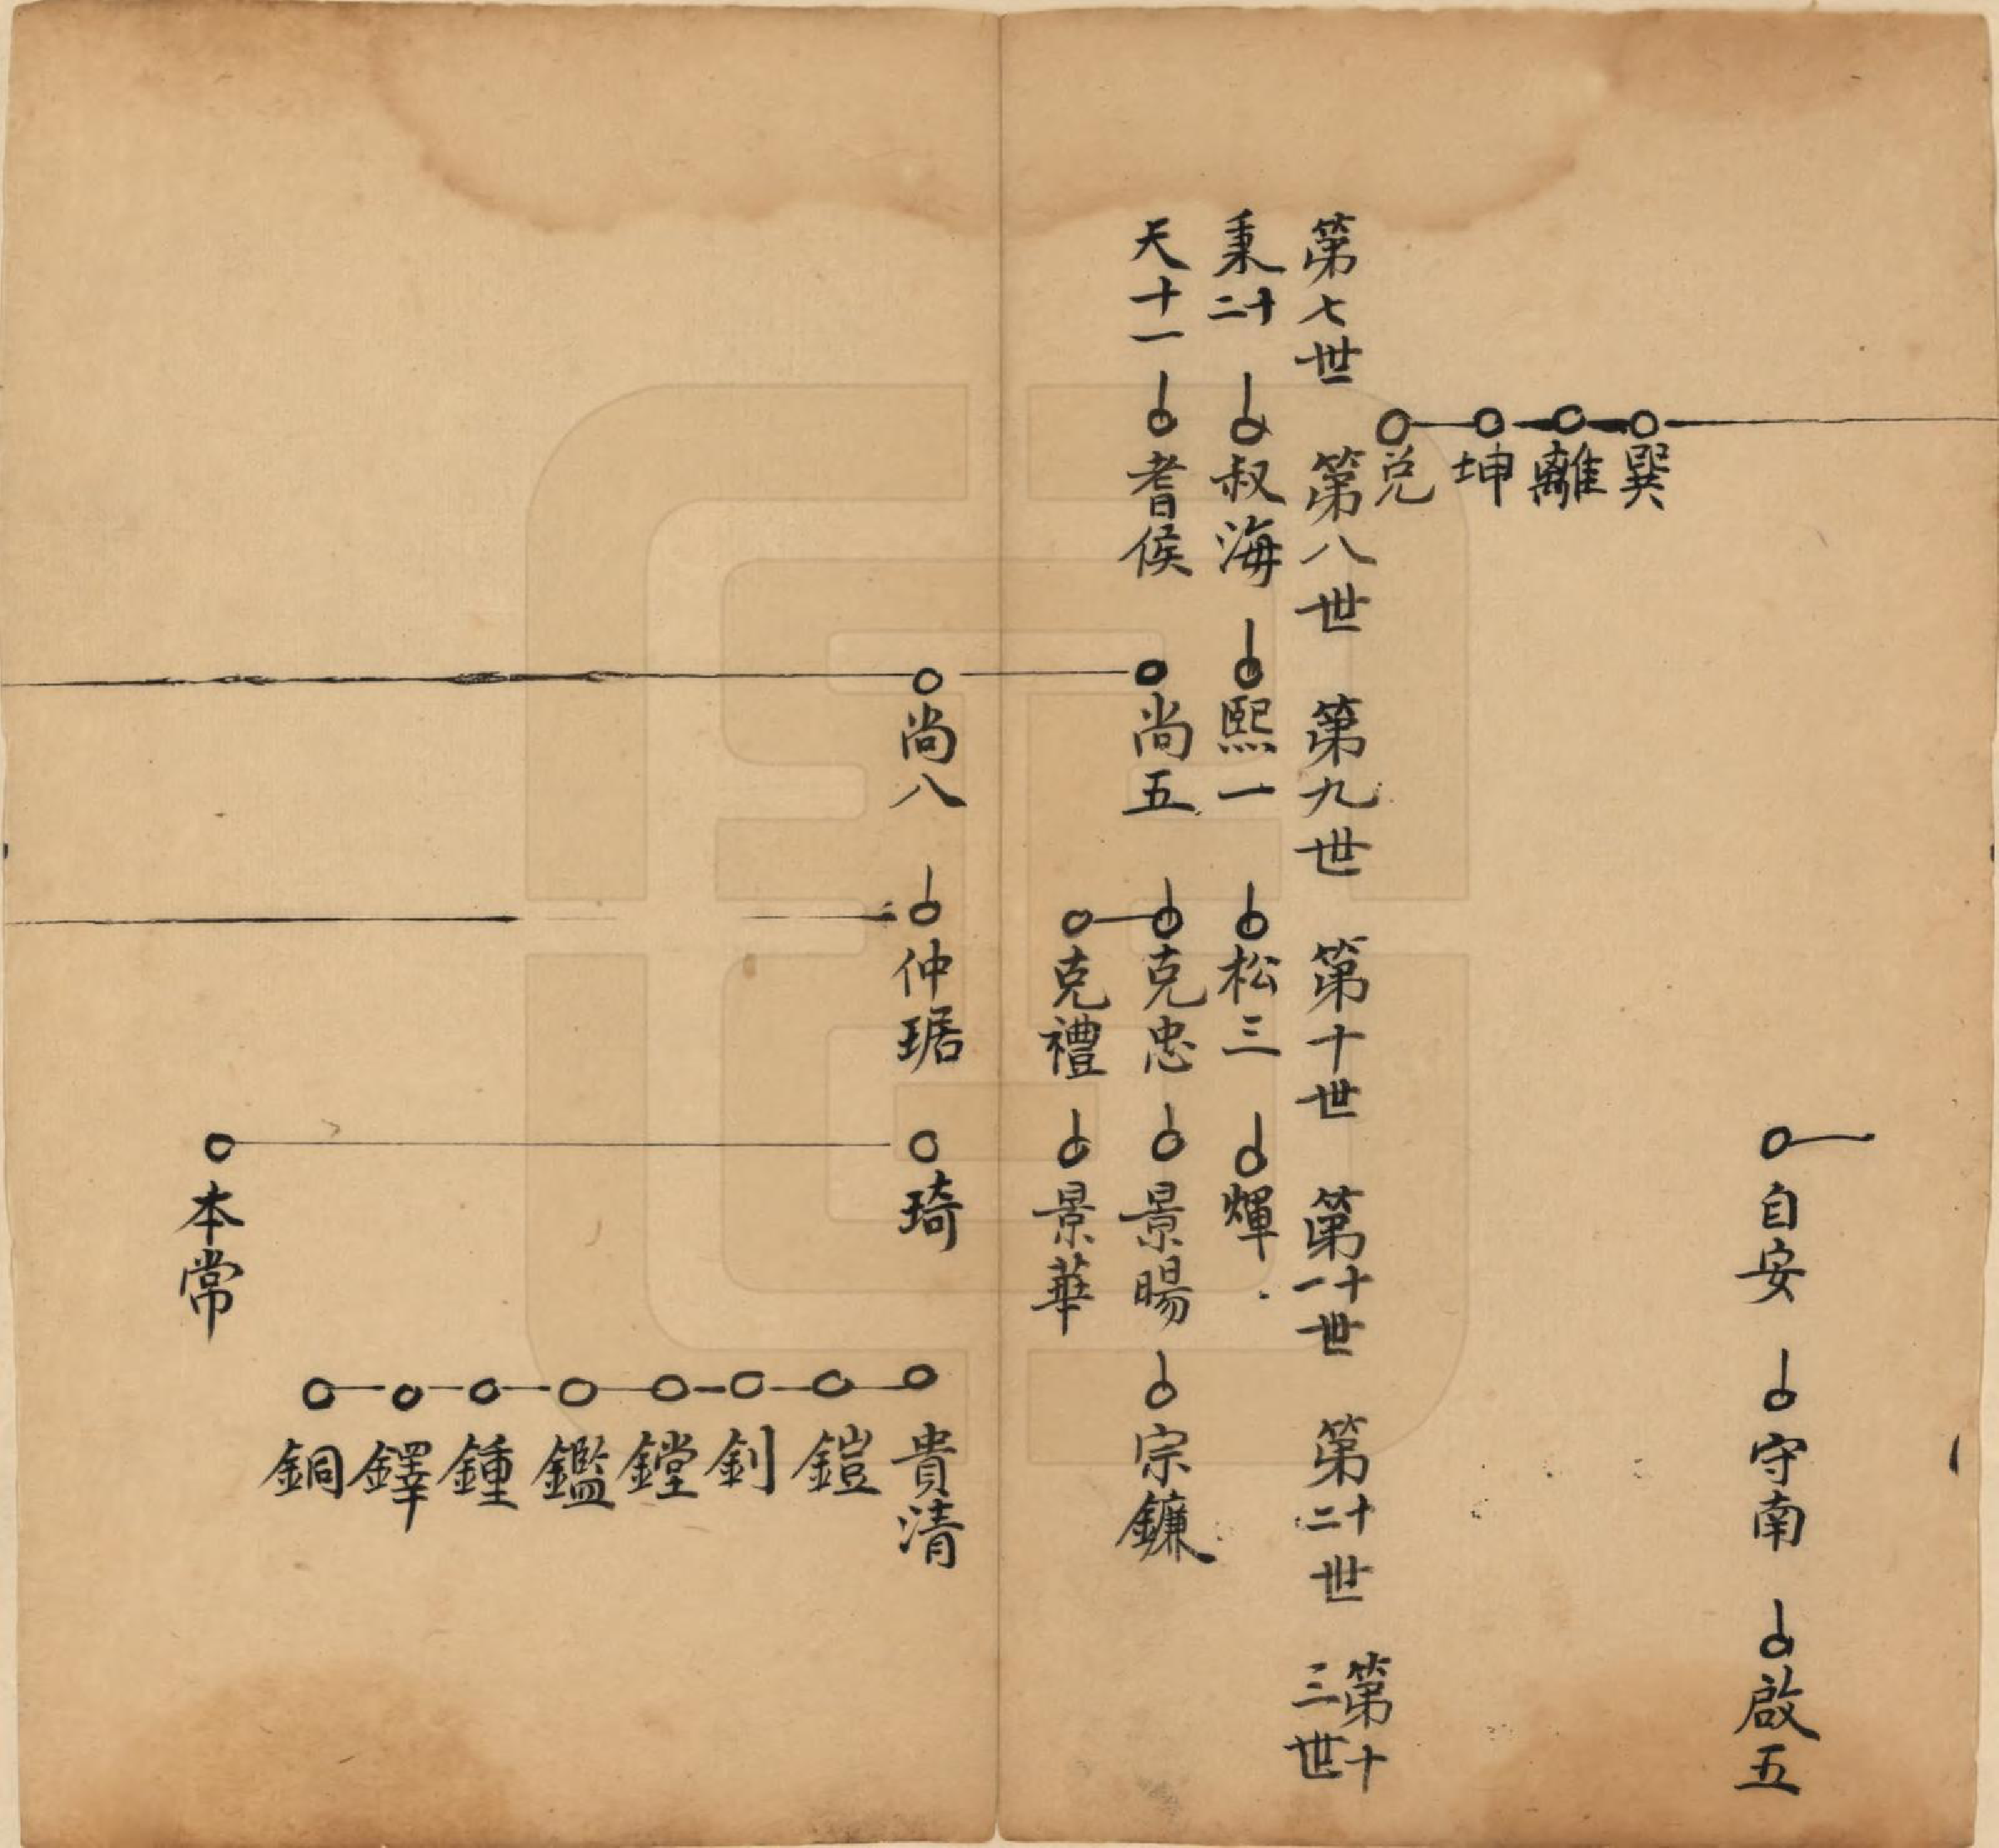 巽
離
坤
兑
自安
守南
啟五
第七世
第八世
第九世
第十世
第十一世
第十二世
第十三世
秉二十
叔海
熙一
松三
輝
天十一
耆侯
尚五
克忠
景暘
宗鐮
克禮
景華
尚八
仲琚
琦
貴清
鎧
釗
鏜
鑑
鍾
鐸
銅
本常